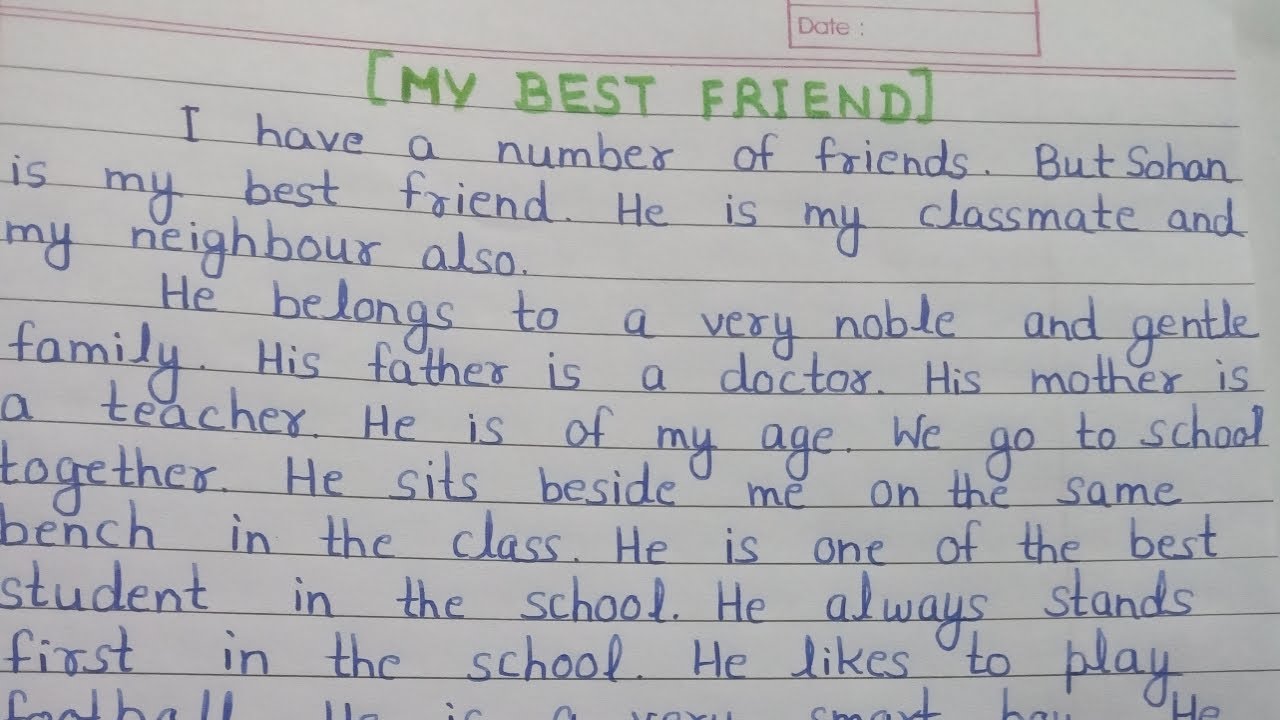 Date :
[MY BEST FRIEND]
I have a number of friends. But Sohan
is my best friend. He is my classmate and
my neighbour also.
He belongs to a very noble and gentle
family. His father is a doctor. His mother is
a teacher. He is of my age. We go to school
together. He sits beside me on the same
bench in the class. He is one of the best
student in the school. He always stands
first in the school. He likes to play
football. He is a very smart boy. He